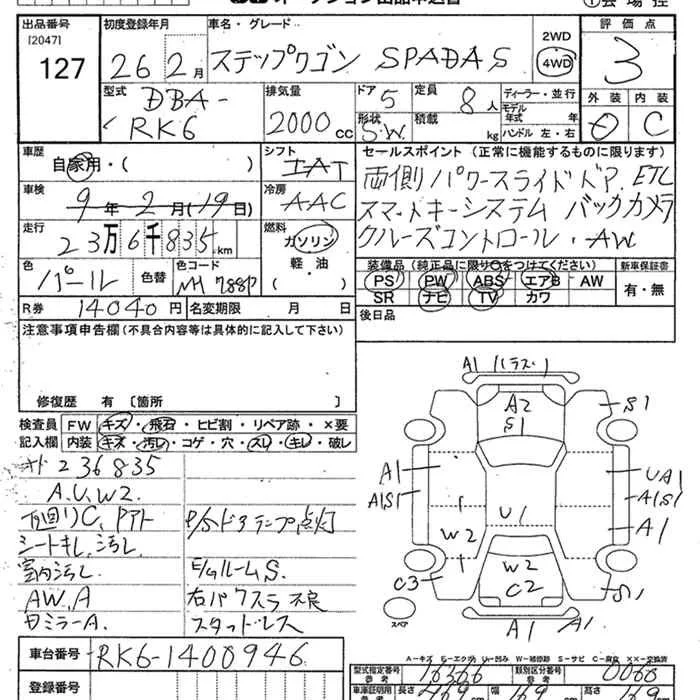 出品番号
[2047]
127
初度登録年月
26 2月
車名・グレード
ステップワゴン SPADA S
2WD
4WD
評価点
3
型式
DBA-
RK6
排気量
2000cc
ドア
5
形状
S.W.
定員
8人
積載
kg
ディーラー・並行
モデル
年式 年
ハンドル 左・右
外装 内装
C
車歴
自家用・( )
シフト
IAT
セールスポイント(正常に機能するものに限ります)
両側パワースライドドア ETC
スマートキーシステム バックカメラ
クルーズコントロール・AW
車検
9年2月(19日)
冷房
AAC
走行
23万6千835km
燃料
ガソリン
軽・油
( )
色
パール
色替
色コード
NH 788P
装備品(純正品に限り○をつけてください)
PS PW ABS エアB AW
SR ナビ TV カワ
新車保証書
有・無
R券 14040円
名変期限 月 日
後日品
注意事項申告欄(不具合内容等は具体的に記入して下さい)
修復歴 有〔箇所 〕
検査員 FW キズ・飛石・ヒビ割・リペア跡・×要
記入欄 内装 キズ・汚レ・コゲ・穴・スレ・キレ・破レ
236835
A.U.W2.
下回りC、
P/Sドアランプ点灯
シートキレ、汚レ
室内汚レ
E/GルームS.
AW.A
右パワスラ不良
スタッドレス
A1 (ラズ)
A2
S1
S1
A1
A1S1
UA1
A1S1
A1
U1
W2
W2
C2
C3
S1
A1
A1
スペア
A-キズ E-エクボ U-凹ミ W-補修跡 S-サビ C-腐食 XX-交換済
車台番号
RK6-1400946
登録番号
型式指定番号
参考
類別区分番号
参考
車庫証明用
参考
長さ
幅
高さ